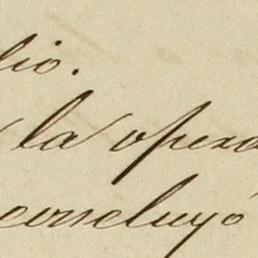 lio.
la opera
concluyó